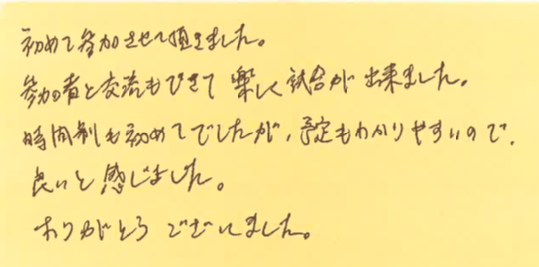 初めて参加させて頂きました。
参加者と交流もできて 楽しく試合が出来ました。
時間制も初めてでしたが、予定もわかりやすいので、
良いと感じました。
ありがとうございました。